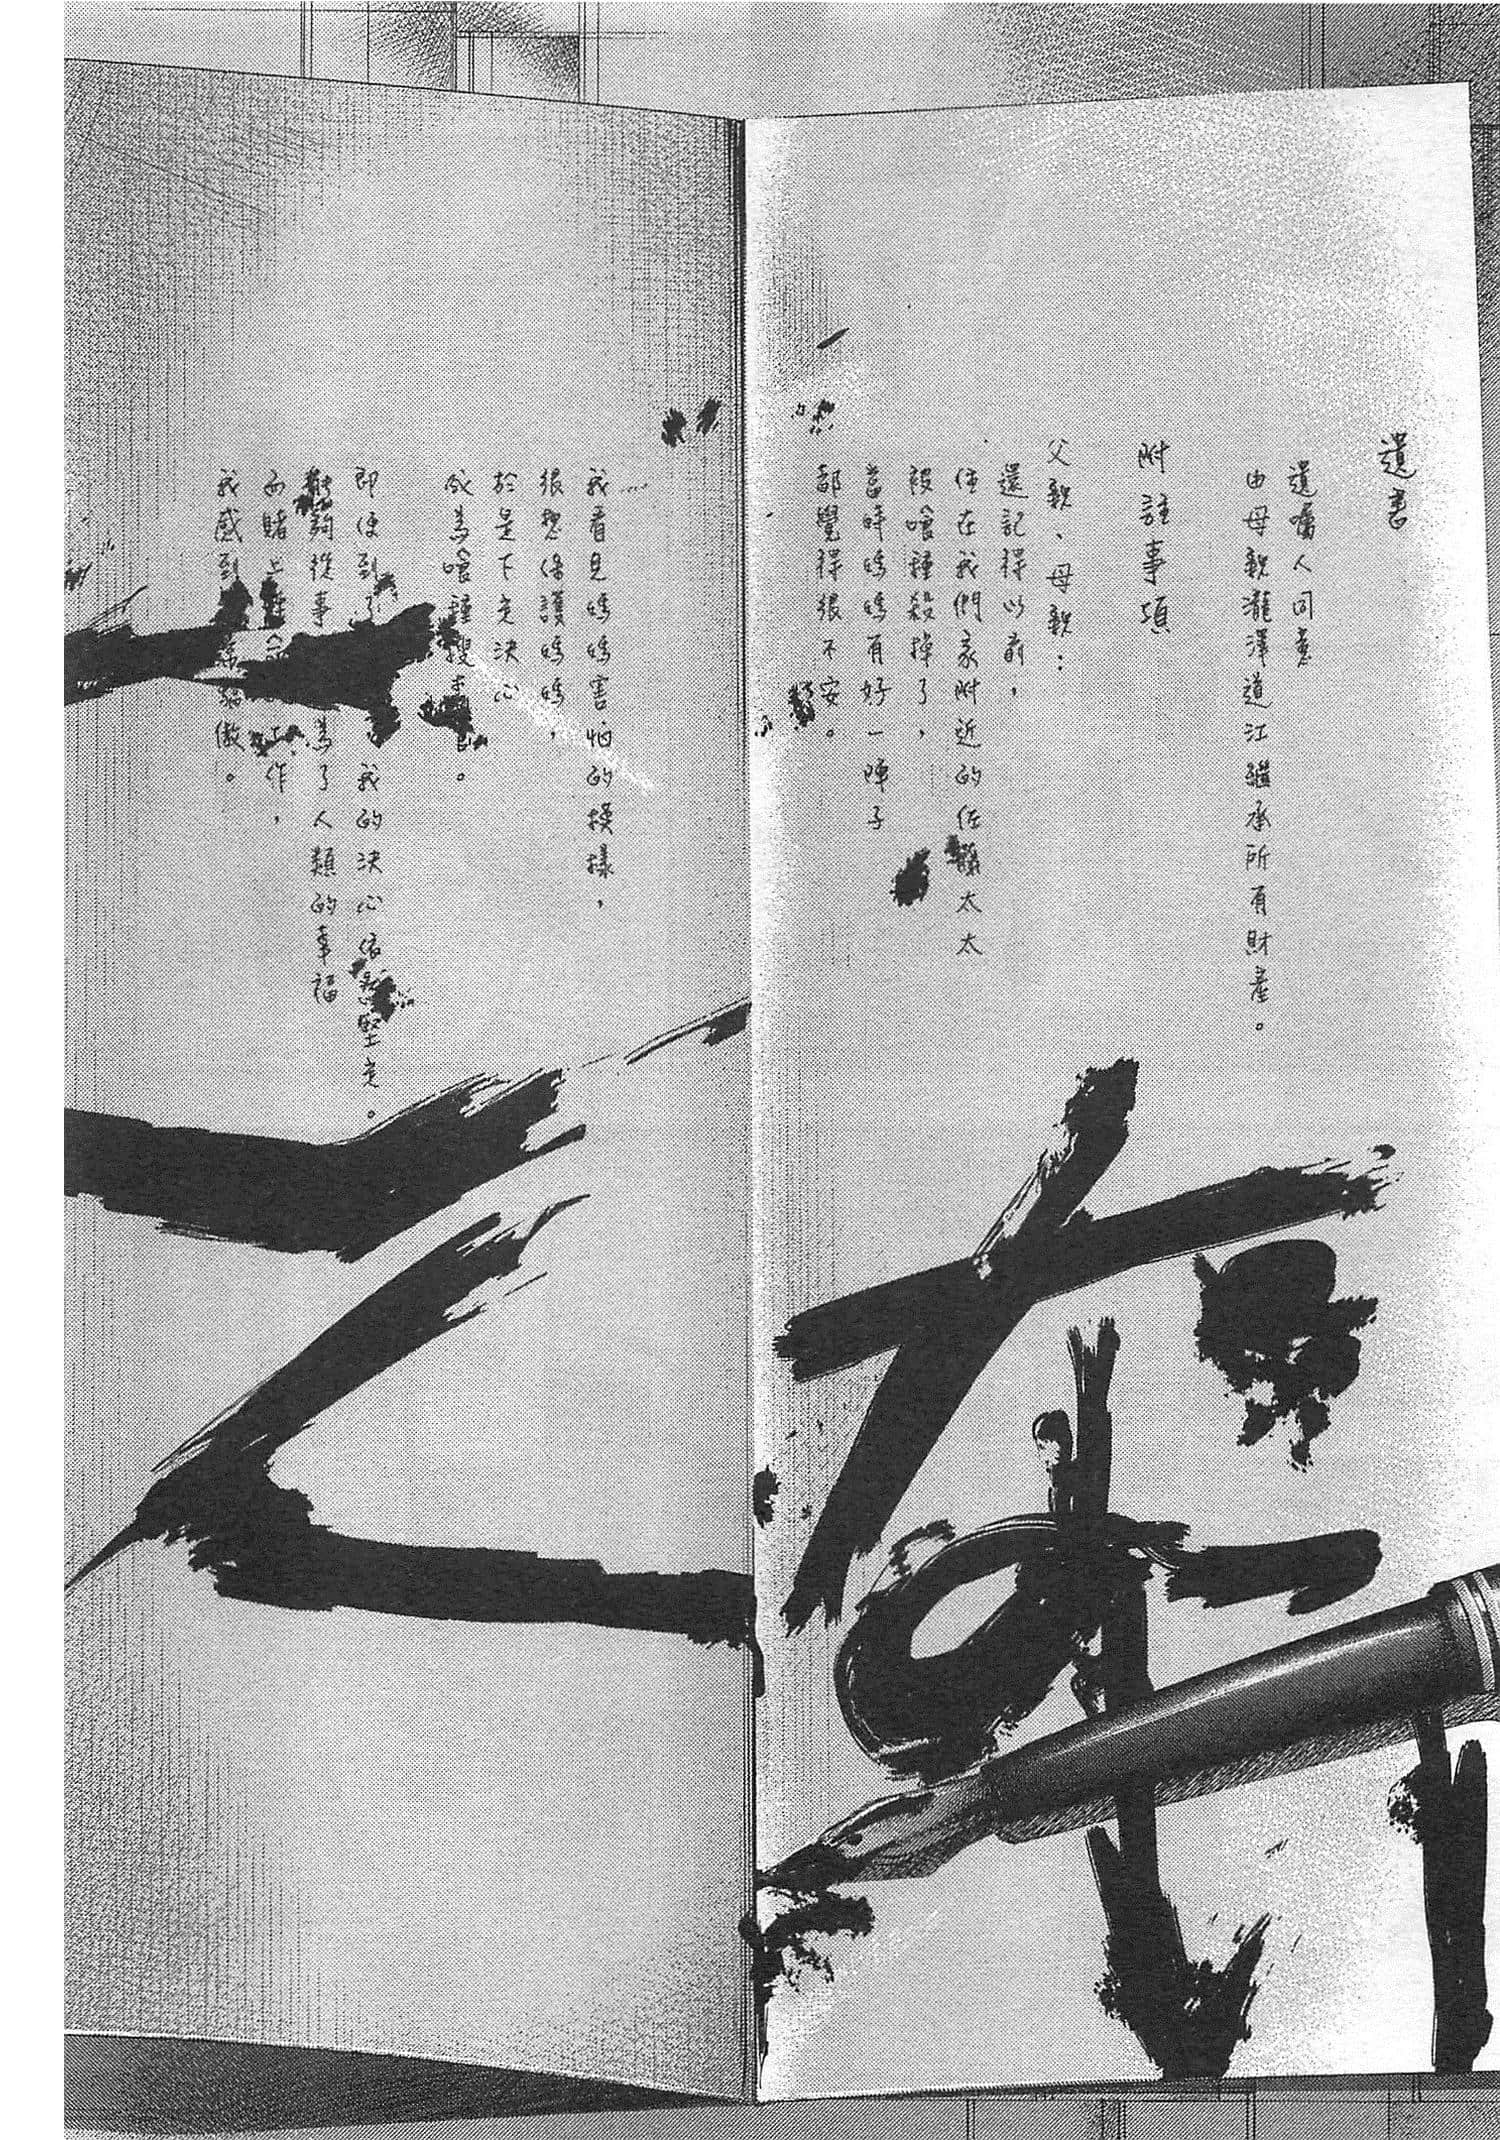 遺書
遺囑人同意
由母親瀧澤道江繼承所有財產。
附註事項
父親、母親：
還記得以前，
住在我們家附近的佐藤太太
被喰種殺掉了，
當時媽媽有好一陣子
都覺得很不安。
我看見媽媽害怕的模樣，
很想保護媽媽，
於是下定決心
成為喰種搜查官。
即便到了 我的決心依然堅定。
能夠從事 為了人類的幸福
而賭上 工作，
我感到 驕傲。